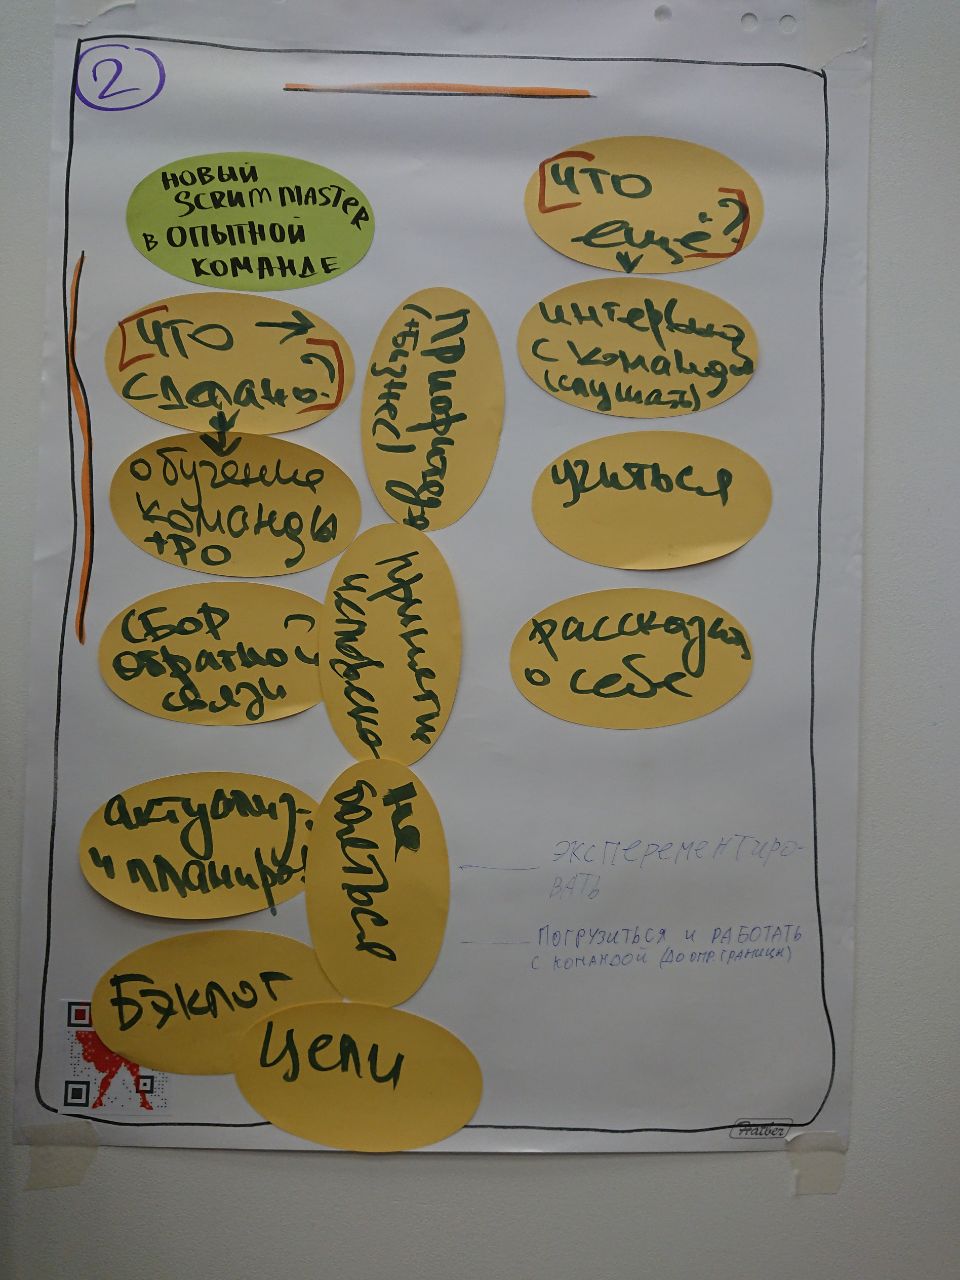 2
НОВЫЙ
SCRUM MASTER
В ОПЫТНОЙ
КОМАНДЕ
[ЧТО →
СДЕЛАНО?]
ОБУЧЕНИЕ
КОМАНДЫ
+PO
СБОР
ОБРАТНОЙ
СВЯЗИ
АКТУАЛИЗ.
И ПЛАНИРО
БЭКЛОГ
ЦЕЛИ
(+БИЗНЕС)
ПРИНЯТИ
НЕ
БОЯТЬСЯ
[ЧТО
ЕЩЁ?]
ИНТЕРВЬЮ
С КОМАНДОЙ
(СЛУШАТЬ)
УЧИТЬСЯ
РАССКАЗАТЬ
О СЕБЕ
ЭКСПЕРЕМЕНТИРО-
ВАТЬ
ПОГРУЗИТЬСЯ И РАБОТАТЬ
С КОМАНДОЙ (ДО ОПР. ГРАНИЦЫ)